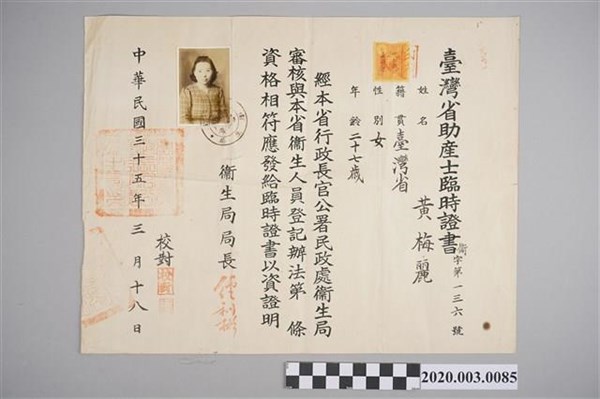 臺灣省助產士臨時證書
衛字第一三六號
姓名 黃梅麗
籍貫 臺灣省
性別 女
年齡 二十七歲
經本省行政長官公署民政處衞生局
審核與本省衞生人員登記辦法第 條
資格相符應發給臨時證書以資證明
衞生局局長
校對
中華民國三十五年三月十八日
2020.003.0085